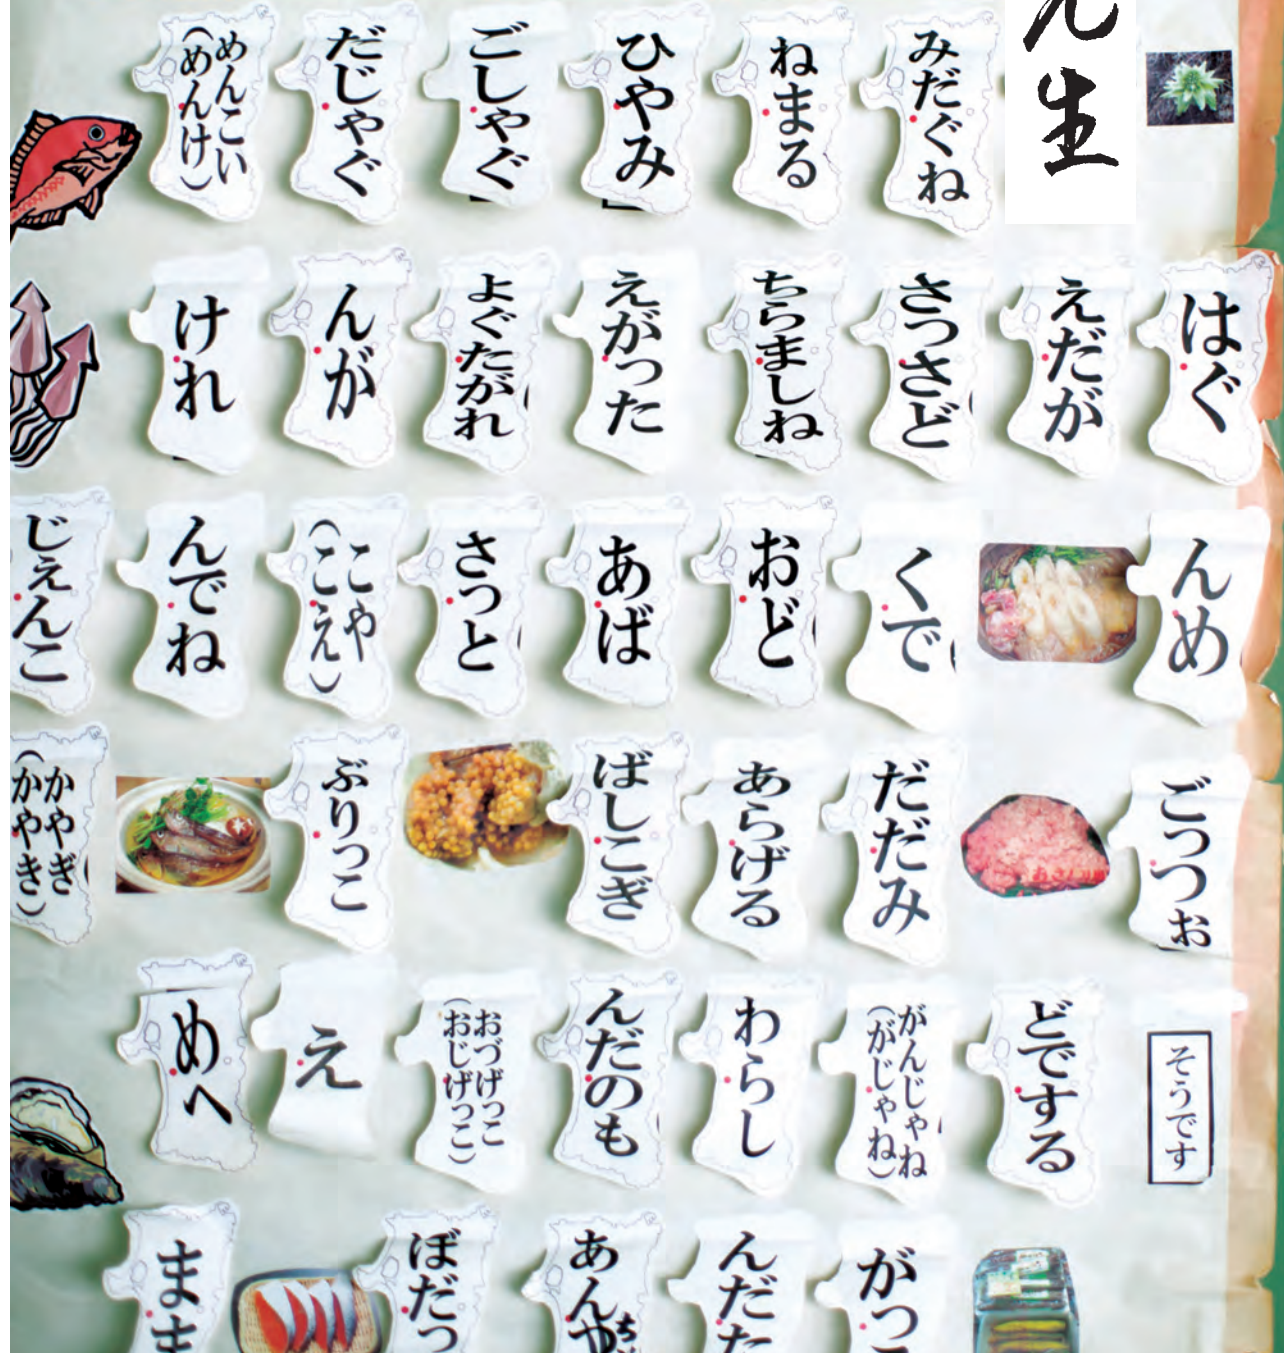 生
みだぐね
ねまる
ひやみ
ごしゃぐ
だじゃぐ
めんこい
（めんけ）
はぐ
えだが
さっさど
ちらましね
えがった
よぐたがれ
んが
けれ
んめ
くで
おど
あば
さっと
こや
（こえ）
んでね
じぇんこ
ごっつぉ
だだみ
あらげる
ばしこぎ
ぶりっこ
かやぎ
（かやき）
そうです
どでする
がんじゃね
（がじゃね）
わらし
んだのも
おづげっこ
（おじげっこ）
え
めへ
がっ
んだ
あん
ぼだっ
まま